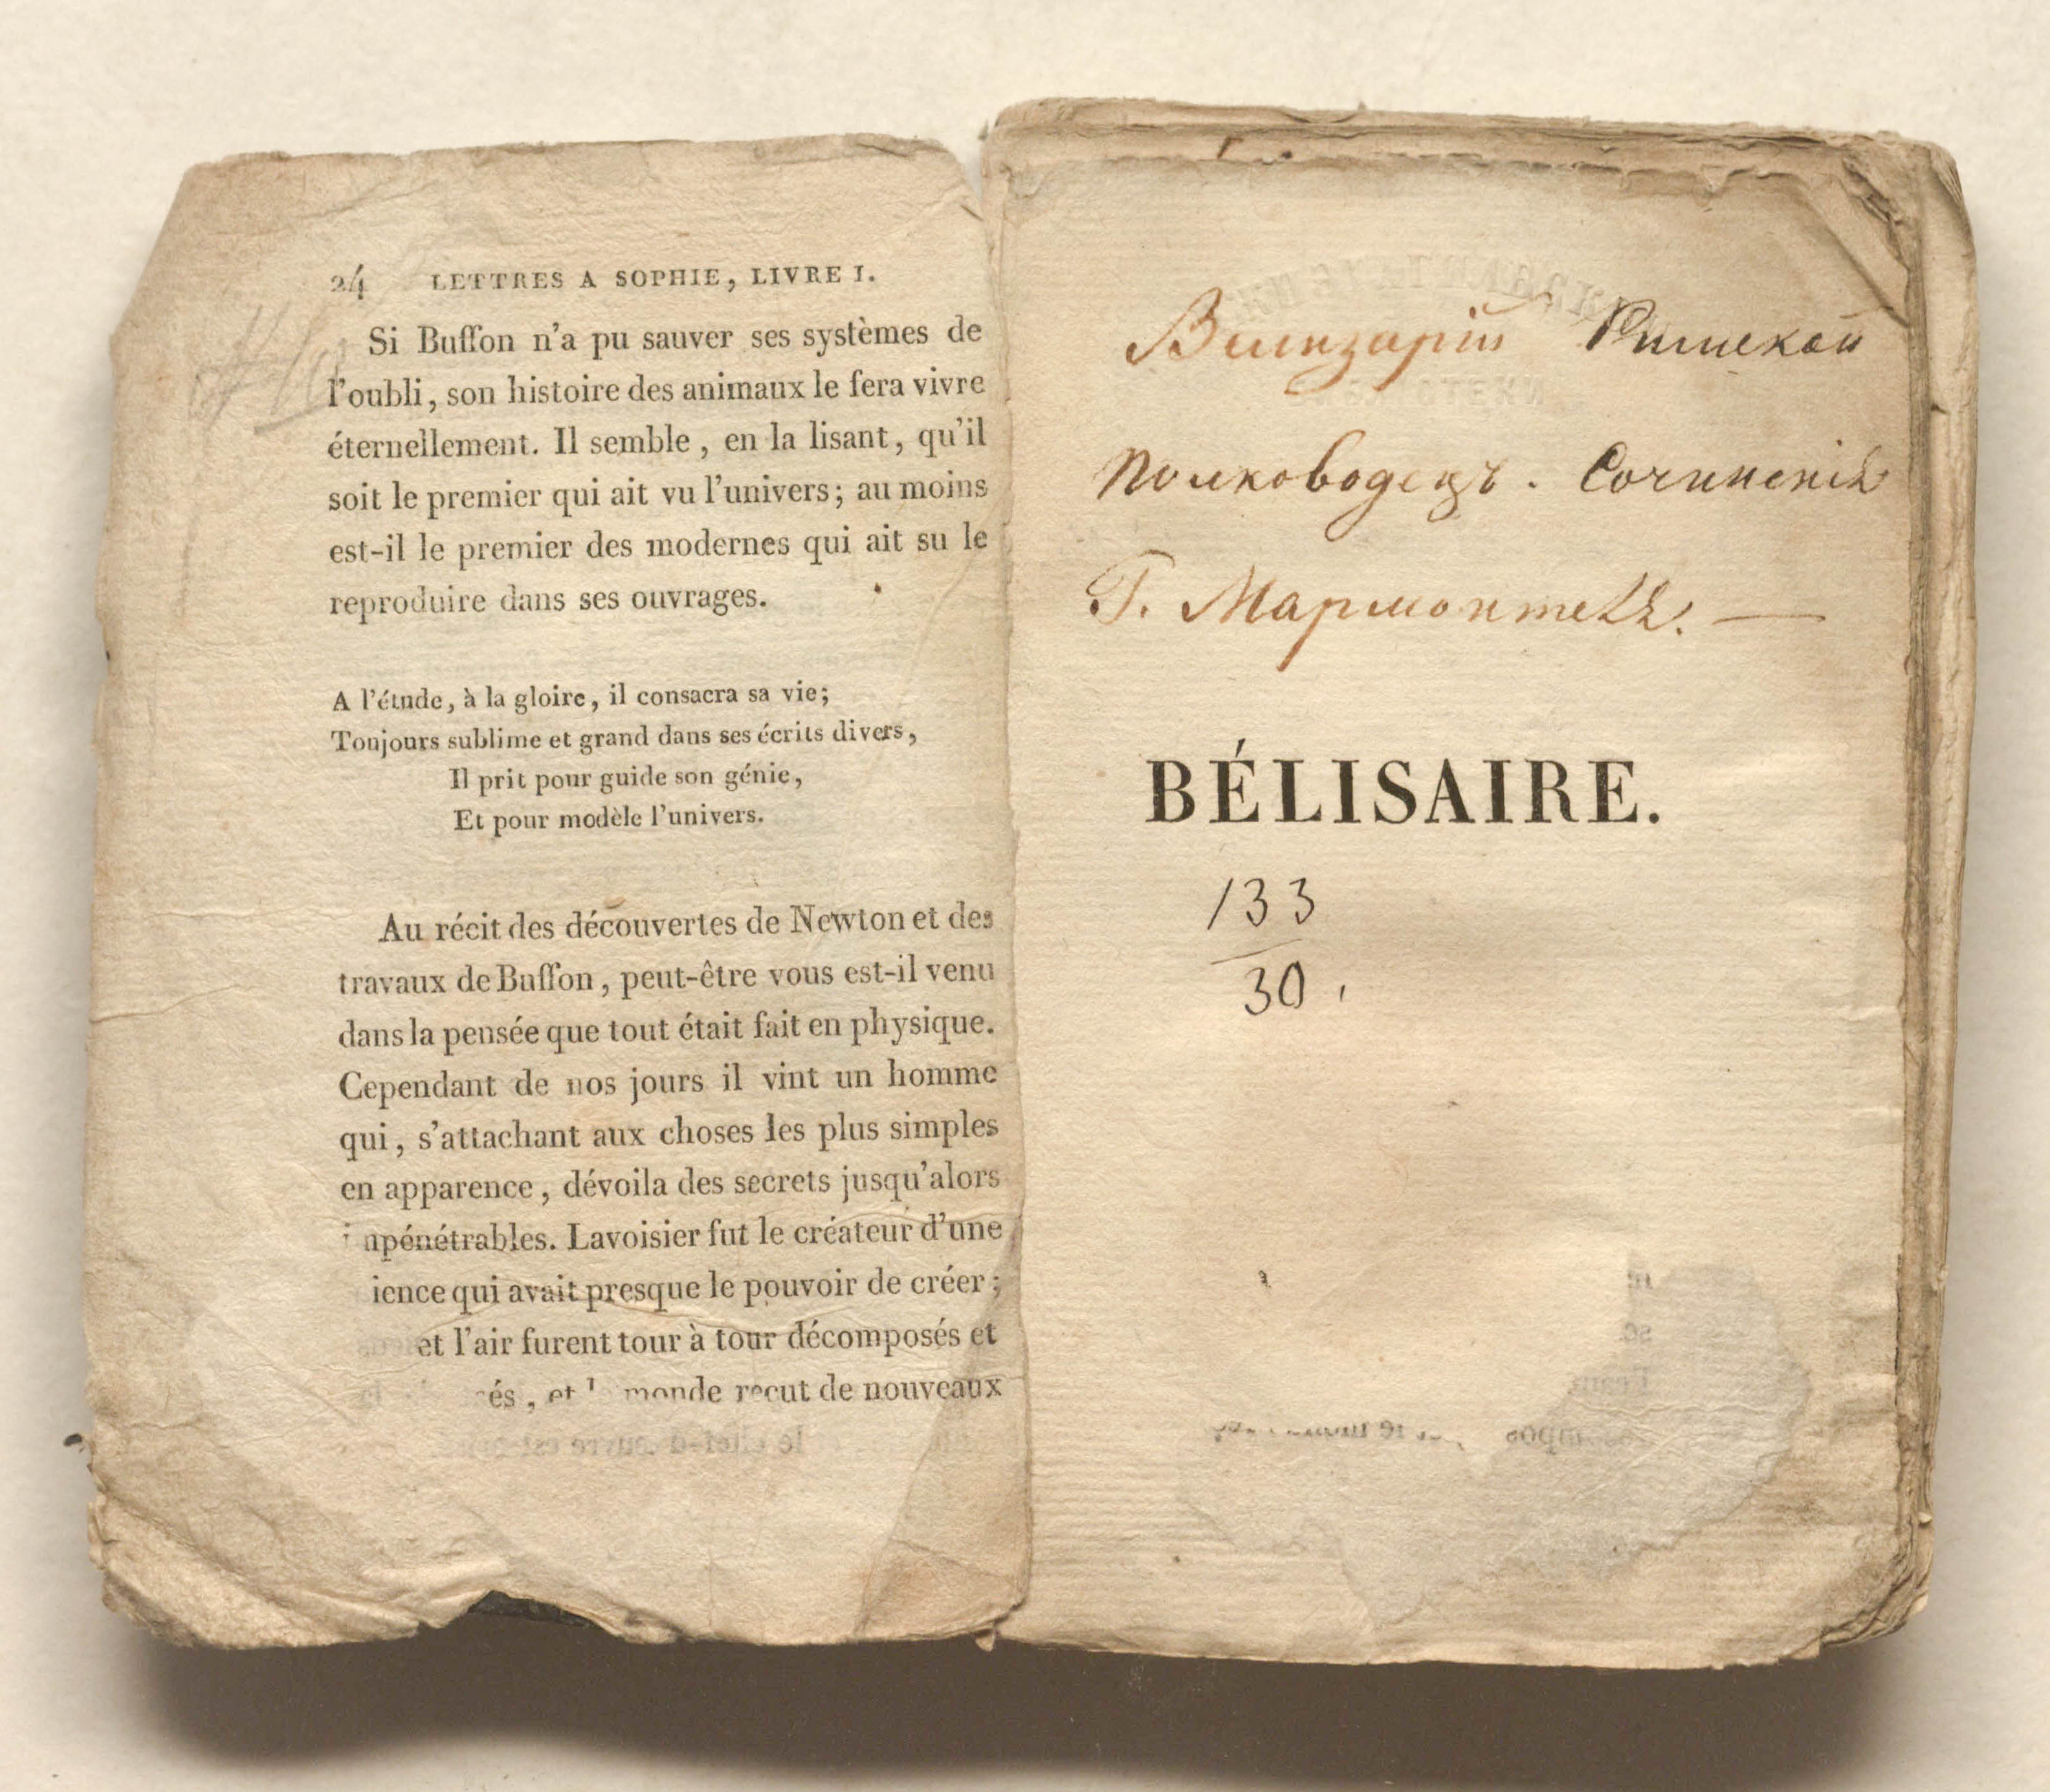 24 LETTRES A SOPHIE, LIVRE I.
Si Buffon n'a pu sauver ses systèmes de
l'oubli, son histoire des animaux le fera vivre
éternellement. Il semble, en la lisant, qu'il
soit le premier qui ait vu l'univers; au moins
est-il le premier des modernes qui ait su le
reproduire dans ses ouvrages.
A l'étude, à la gloire, il consacra sa vie;
Toujours sublime et grand dans ses écrits divers,
Il prit pour guide son génie,
Et pour modèle l'univers.
Au récit des découvertes de Newton et des
travaux de Buffon, peut-être vous est-il venu
dans la pensée que tout était fait en physique.
Cependant de nos jours il vint un homme
qui, s'attachant aux choses les plus simples
en apparence, dévoila des secrets jusqu'alors
npénétrables. Lavoisier fut le créateur d'une
ience qui avait presque le pouvoir de créer;
et l'air furent tour à tour décomposés et
és, et monde reçut de nouveaux
Велизарій Римской
Полководецъ. Сочиненія
Г. Мармонтеля. —
BÉLISAIRE.
133
30